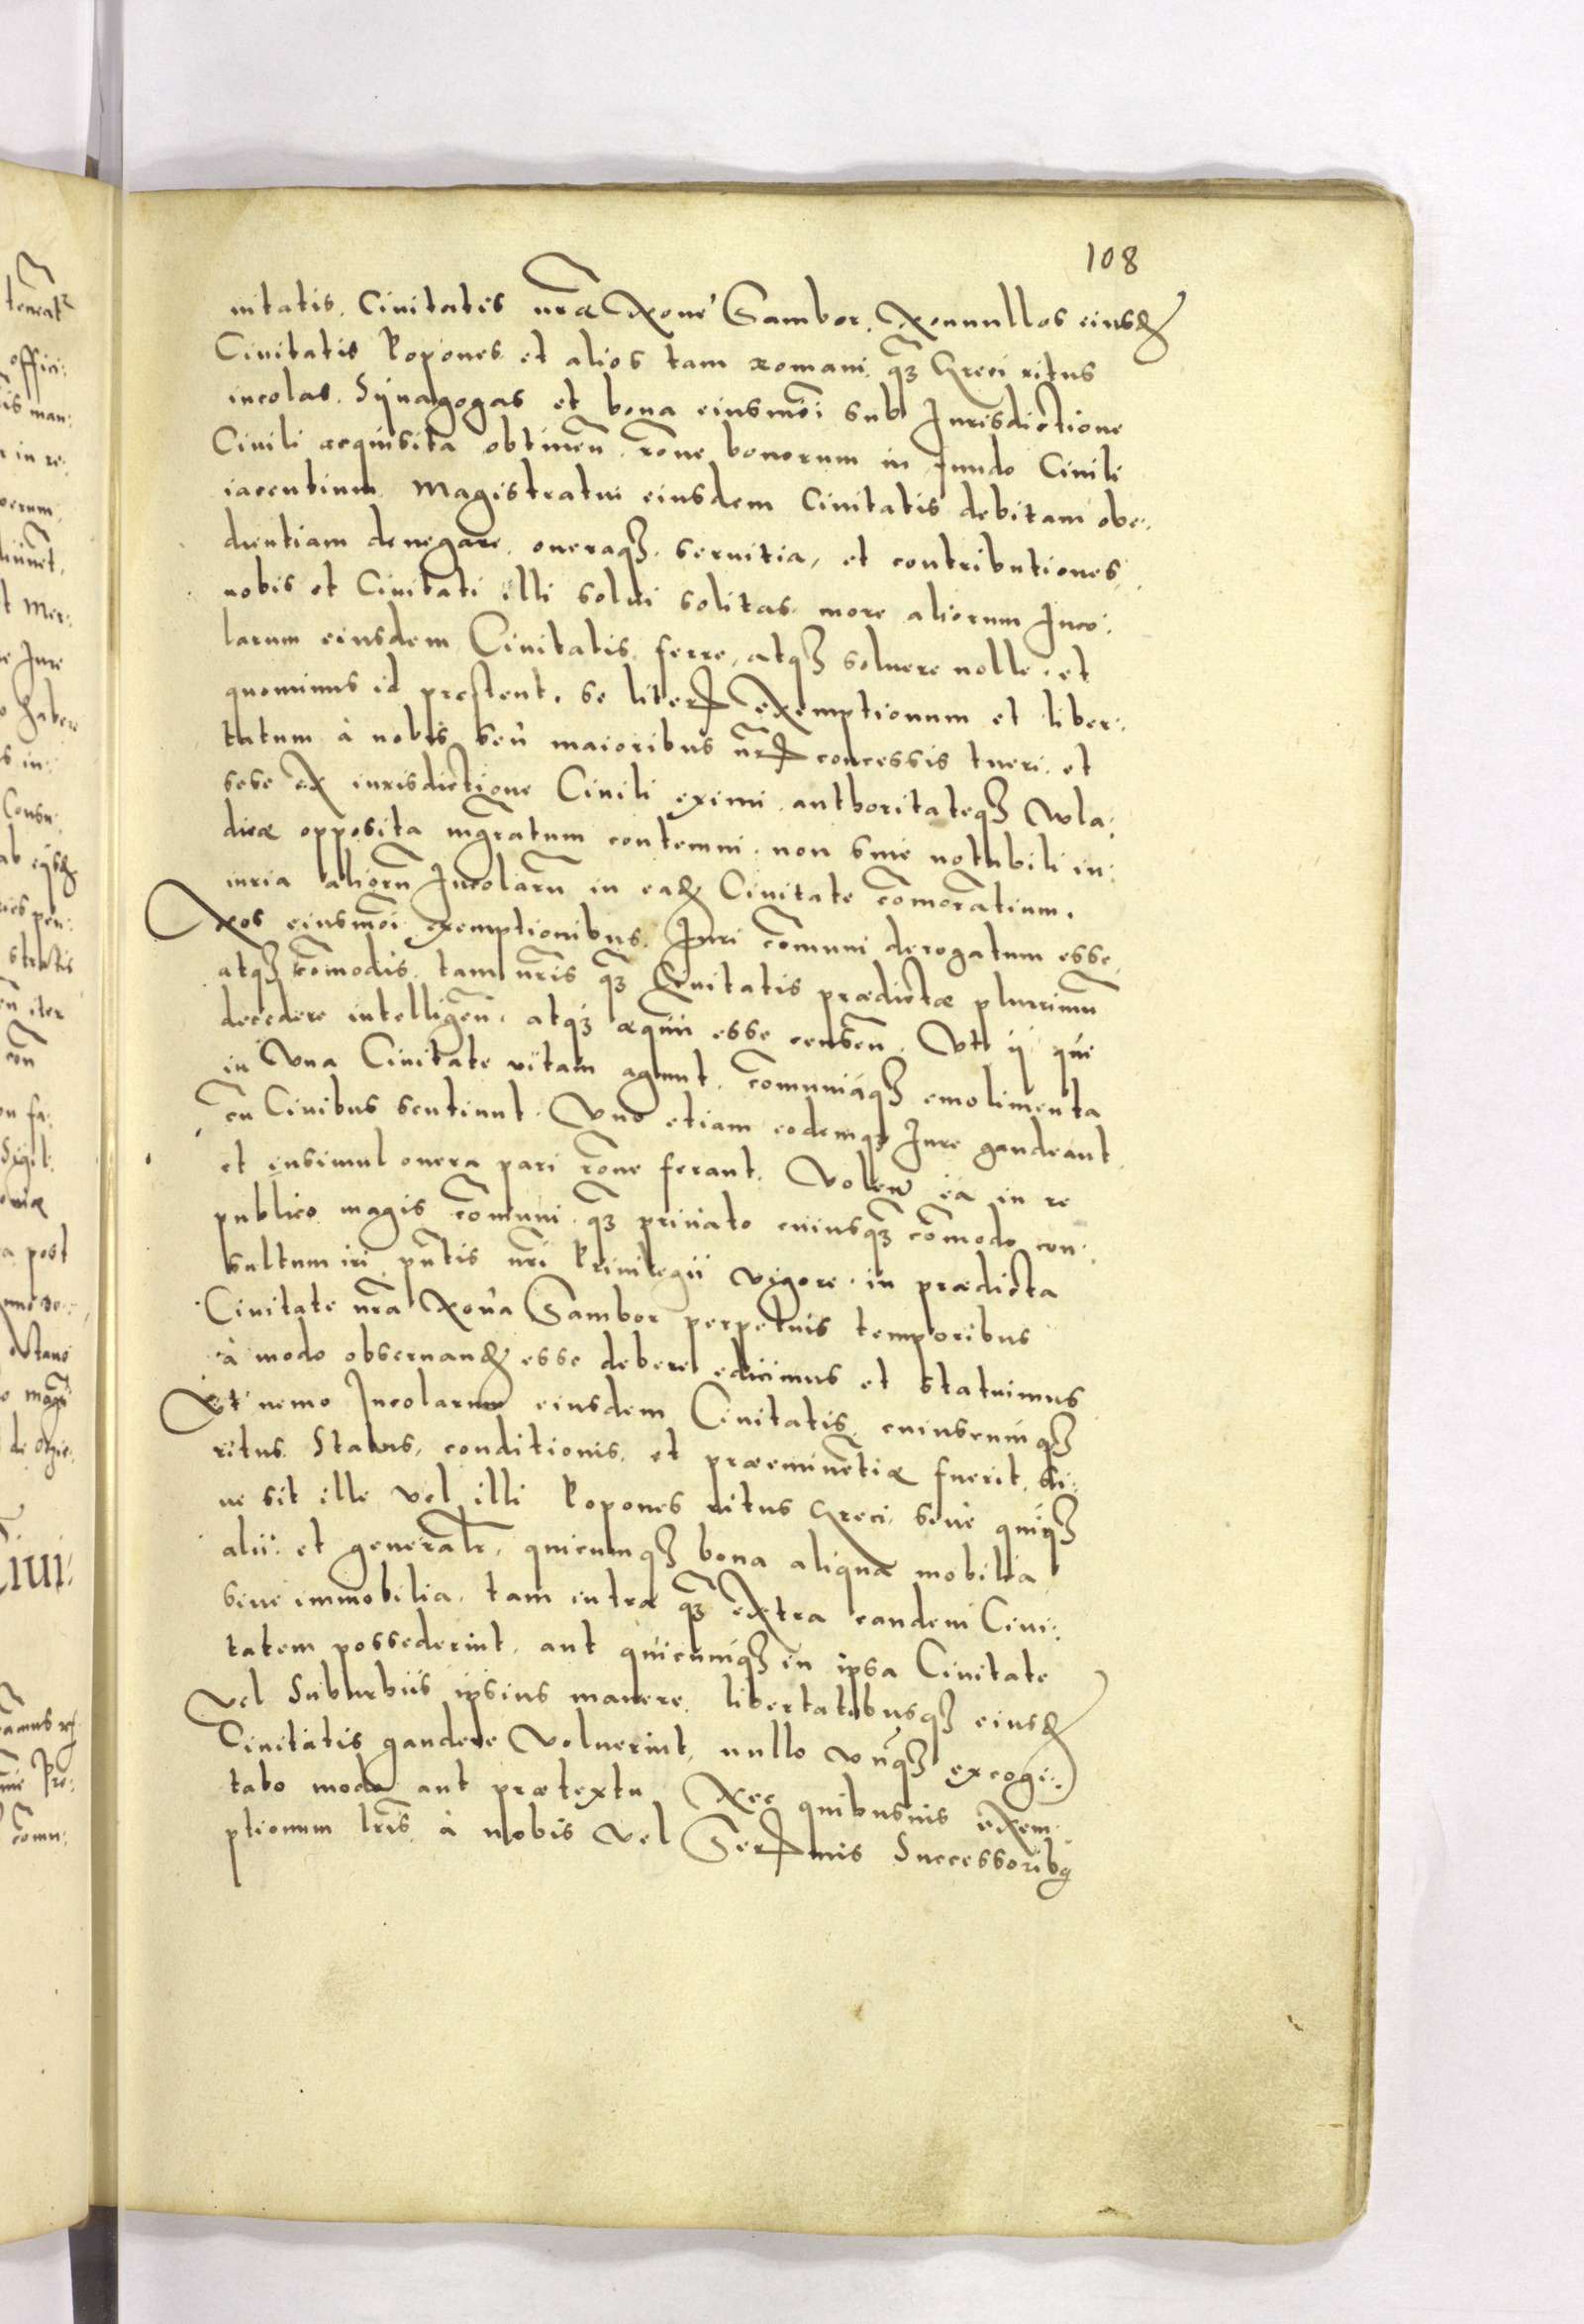 108
nitatis. Ciuitatis nr̃æ Noue Sambor. Nonnullos eiusdẽ
Ciuitatis Popones et alios tam romani. q̃ꝫ Greci ritus
incolas. Synagogas et bona eiusmõi sub Jurisdictione
Ciuili acquisita obtineñ. rõne bonorum in fundo Ciuili
iacentium Magistratui eiusdem Ciuitatis debitam obe:
dientiam denegare. oneraqꝫ. seruitia, et contributiones
nobis et Ciuitati illi solui solitas. more aliorum Inco:
larum eiusdem Ciuitatis. ferre, atqꝫ soluere nolle. et
quominus id prestent. se literis exemptionum et liber:
tatum à nobis seu maioribus nr̃is concessis tueri. et
sese ex iurisdictione Ciuili eximi. authoritateqꝫ Wla:
dicæ opposita mgr̃atum contemni. non sine notabili in:
iuria aliorũ Incolarũ in eadẽ Ciuitate cõmorãtium.
Nos eiusmõi exemptionibus. Juri cõmuni derogatum esse,
atqꝫ cõmodis. tam nr̃is q̃ꝫ Ciuitatis prædictæ plurimũ
decedere intelligeñ. atqꝫ æquũ esse censeñ. Vt ij qui
in Vna Ciuitate vitam agunt. cõmuniaqꝫ emolimenta
cũ Ciuibus sentiunt. Vno etiam eodemqꝫ Jure gaudeant.
et insimul onera pari rõne ferant. Volen ea in re
publico magis cõmuni. q̃ꝫ priuato cuiusqꝫ cõmodo con:
sultum iri. pñtis nr̃i Priuilegii vigore. in prædicta
Ciuitate nr̃a Noua Sambor perpetuis temporibus
à modo obseruandũ esse debere edicimus et statuimus
Vt nemo Incolarum eiusdem Ciuitatis. cuiuscunqꝫ
ritus. Status, conditionis. et præeminẽtiæ fuerit. si:
ue sit ille vel illi Popones ritus Greci. siue quiqꝫ
alii. et generalr̃. quicumqꝫ bona aliqua mobilia
siue immobilia. tam intra q̃ꝫ extra eandem Ciui:
tatem possederint. aut quicunqꝫ in ipsa Ciuitate
Vel Suburbiis ipsius manere. libertatibusqꝫ eiusdẽ
Ciuitatis gaudere Voluerint. nullo vnqꝫ excogi:
tato modo aut prætextu Nec quibusuis exem:
ptionum lr̃is. à nobis Vel Serenmis Successoribꝫ